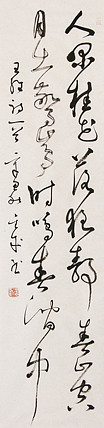 人閒桂花落夜靜春山空
月出驚山鳥時鳴春澗中
王維詩一首